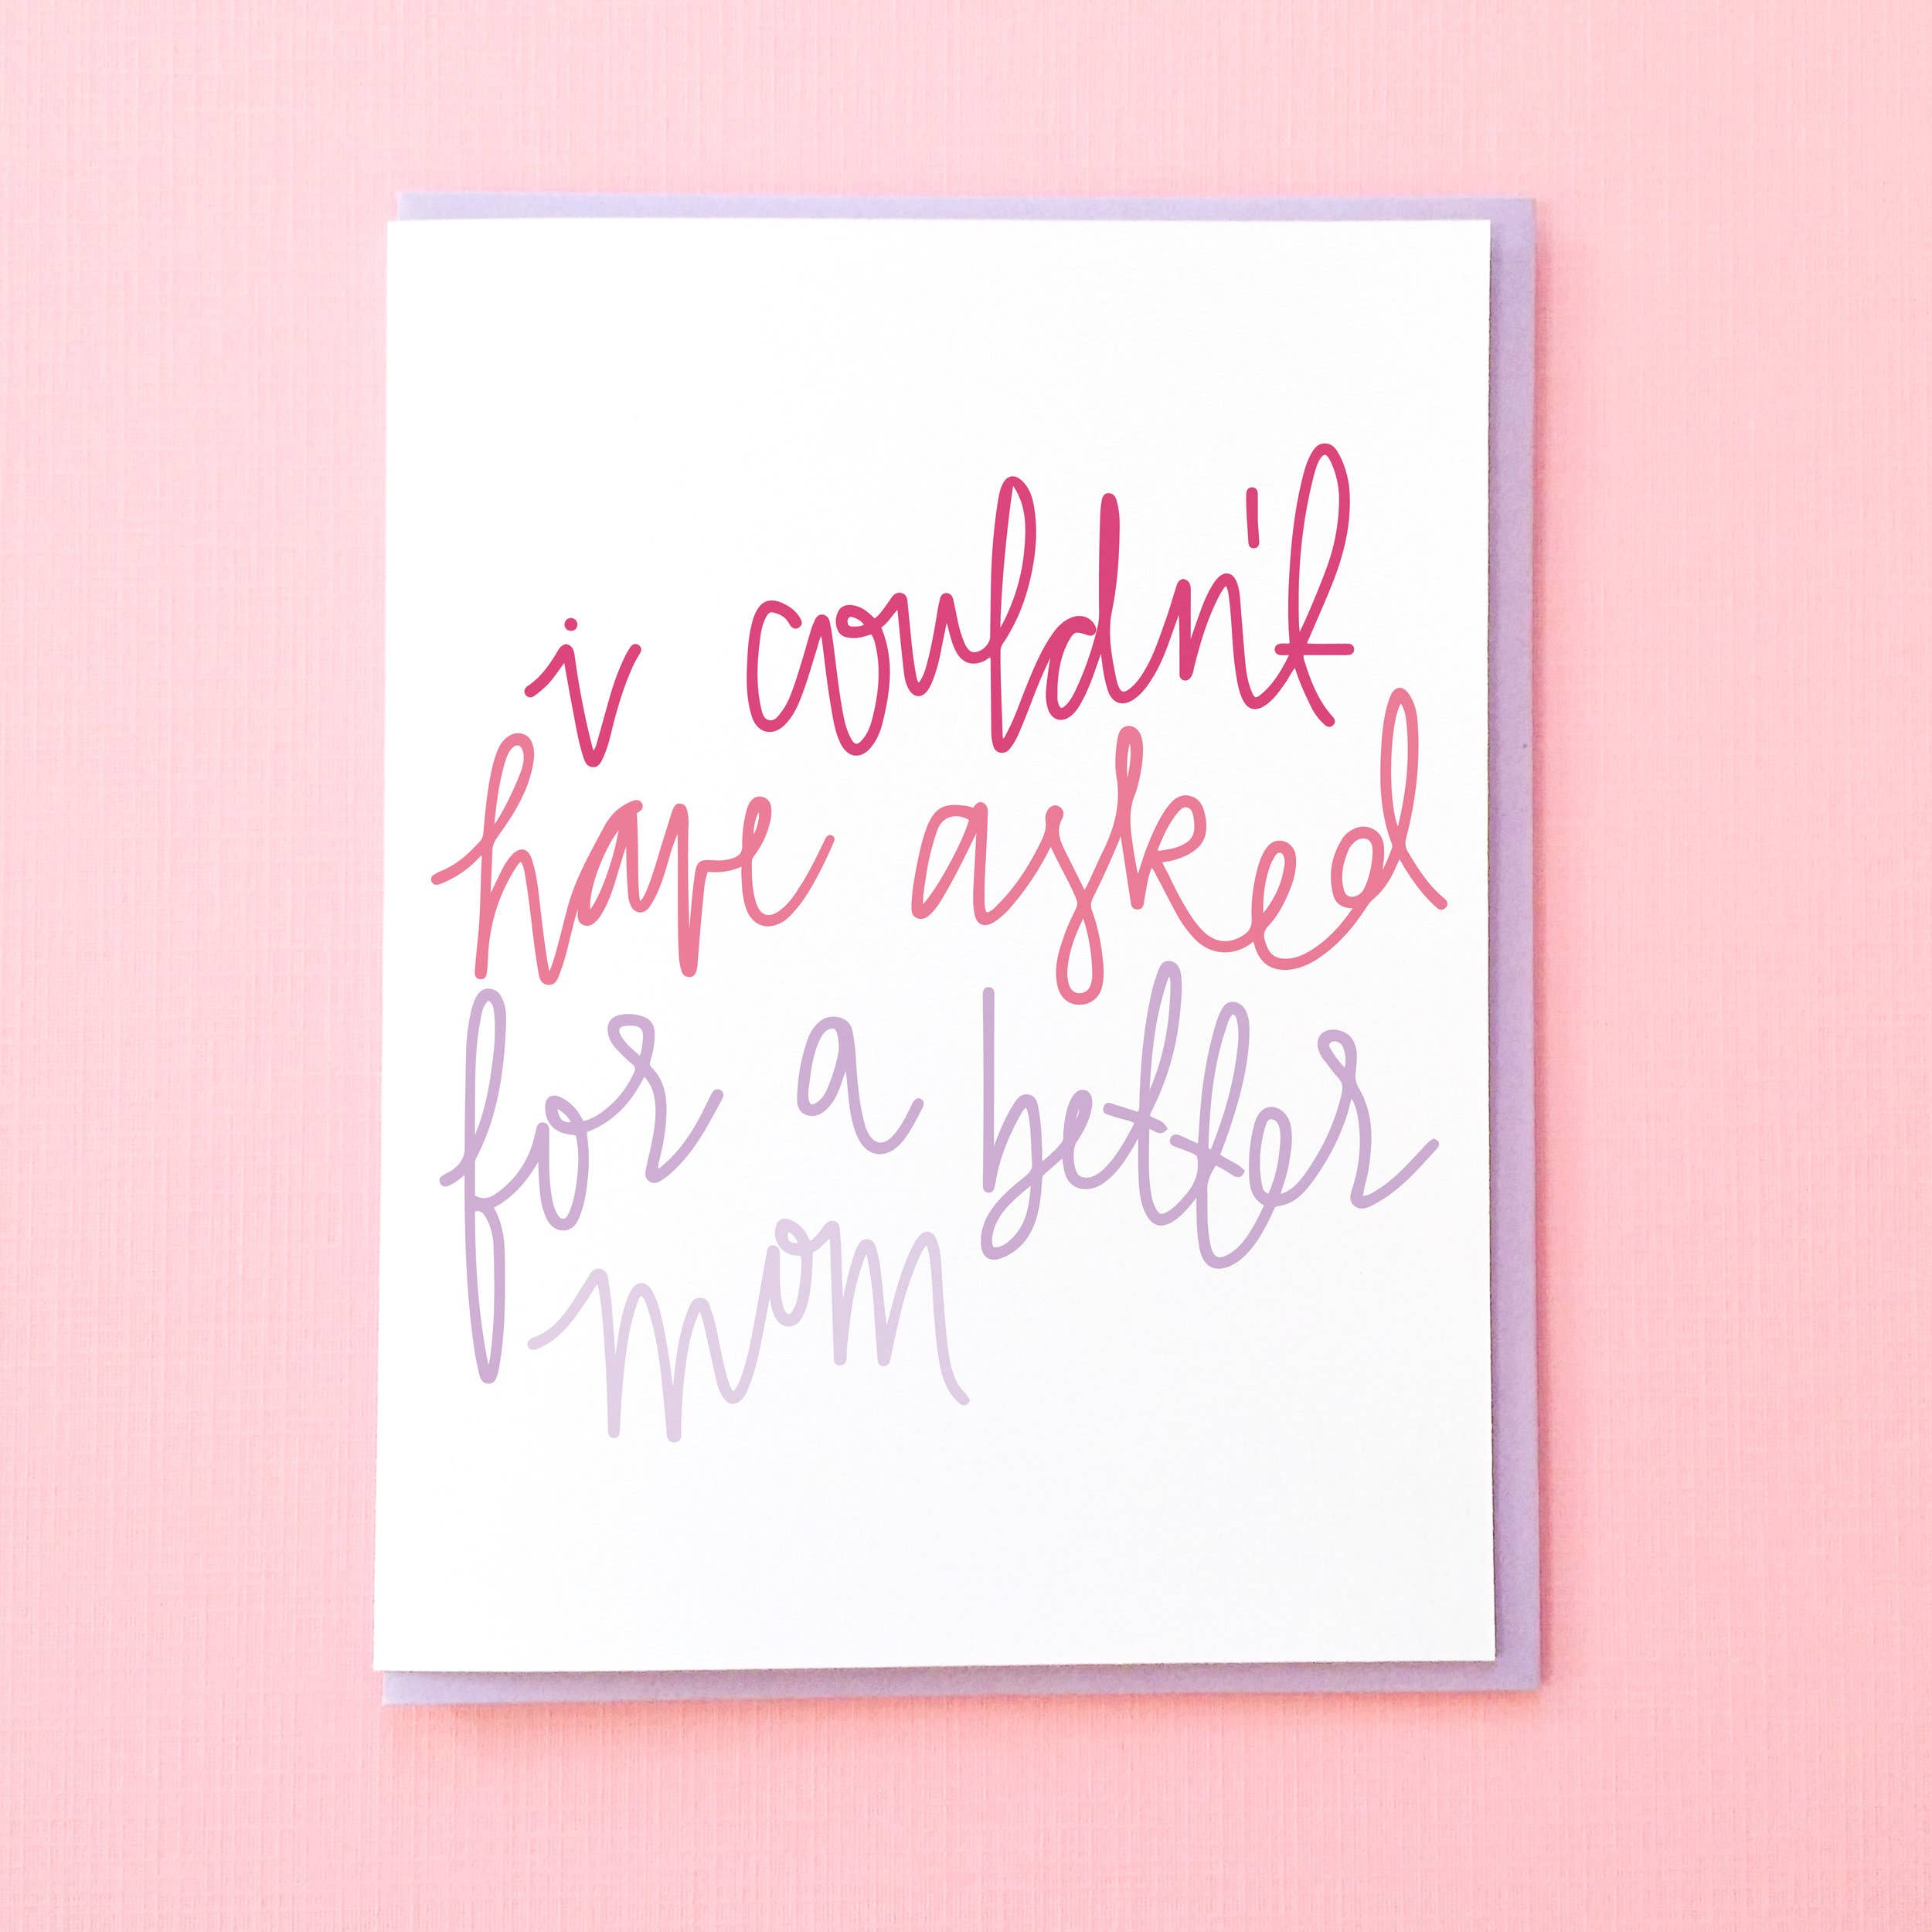 i couldn't
have asked
for a better
mom